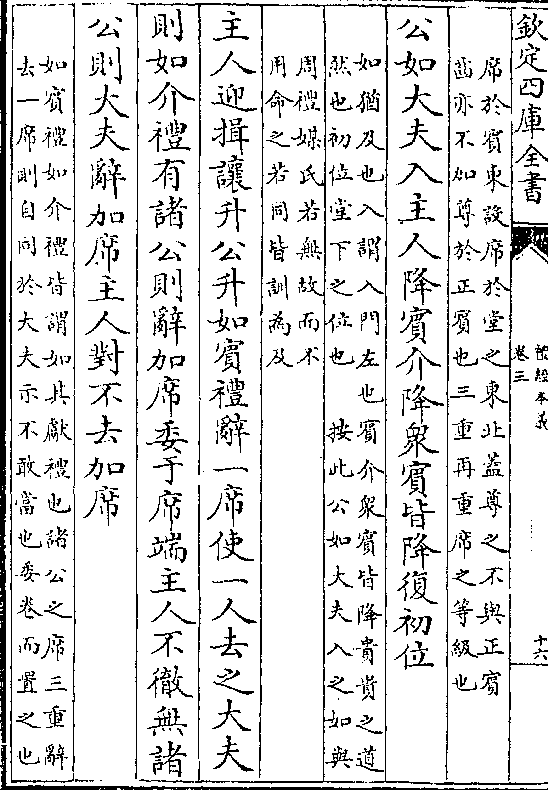 欽定四庫全書
儀經本義
卷三
十六
席於賓東設席於堂之東北蓋尊之不與正賓
齒亦不加尊於正賓也三重再重席之等級也
公如大夫入主人降賓介降衆賓皆降復初位
如猶及也入謂入門左也賓介衆賓皆降貴貴之道
然也初位堂下之位也 按此公如大夫入之如與
周禮媒氏若無故而不
用命之若同皆訓為及
主人迎揖讓升公升如賓禮辭一席使一人去之大夫
則如介禮有諸公則辭加席委于席端主人不徹無諸
公則大夫辭加席主人對不去加席
如賓禮如介禮皆謂如其獻禮也諸公之席三重辭
去一席則自同於大夫示不敢當也委卷而置之也